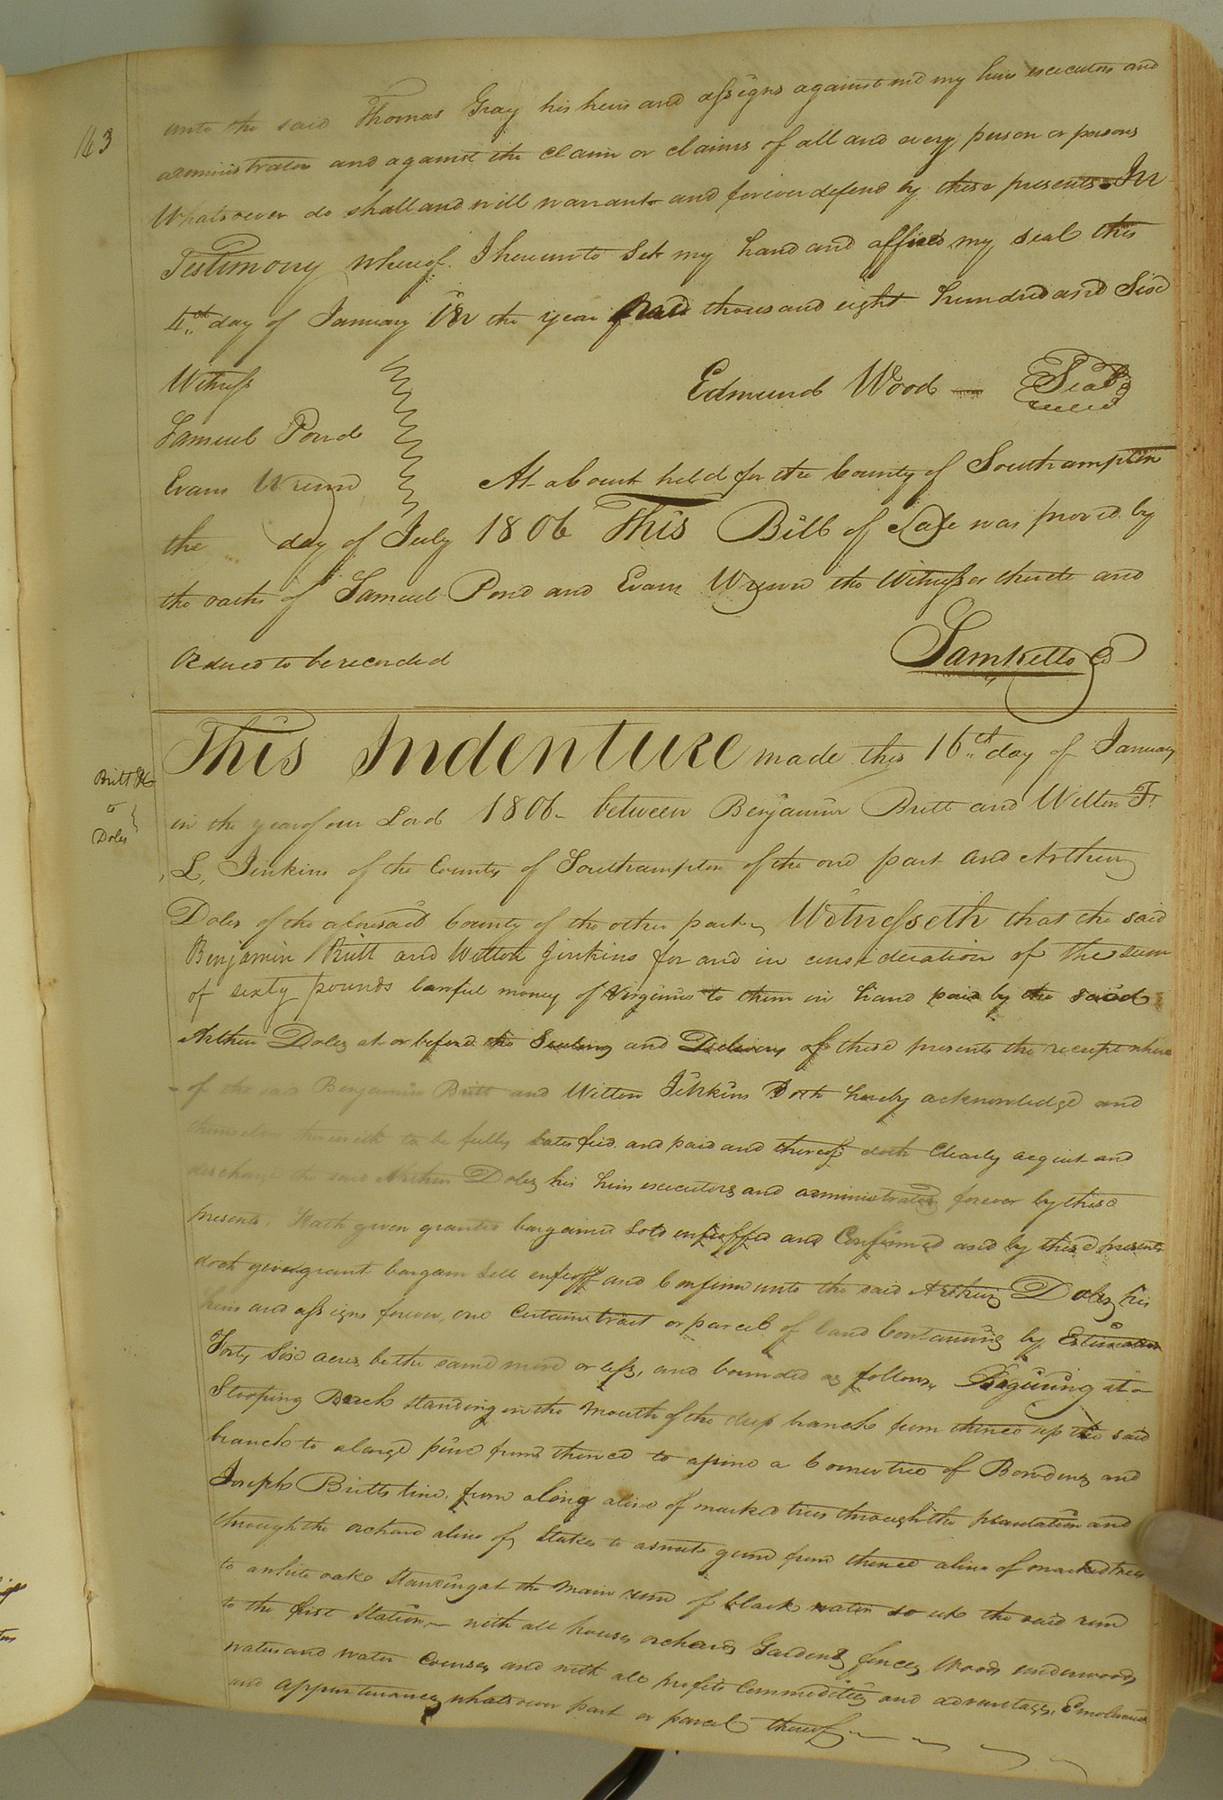 163
unto the said Thomas Gray his heirs and assigns against me my heirs executors and
administrators and against the claim or claims of all and every person or persons
Whatsoever do shall and will warrant and forever defend by these presents In
Testimony whereof I hereunto Set my hand and affixed my seal this
4th day of January in the year thousand eight hundred and Six
Witness
Edmund Wood Seal
Samuel Pond
Evans Wrenn
At a Court held for the County of Southampton
the day of July 1806 This Bill of Sale was proved by
the oaths of Samuel Pond and Evans Wrenn the Witnesses thereto and
Ordered to be recorded
Sam Kello C
Britt &c
to
Doles
This Indenture made this 16th day of January
in the year of our Lord 1806 between Benjamin Britt and Wilton F.
L. Jinkins of the County of Southampton of the one part and Arthur
Doles of the aforesaid County of the other part Witnesseth that the said
Benjamin Britt and Wilton Jinkins for and in consideration of the sum
of sixty pounds lawful money of Virginia to them in hand paid by the said
Arthur Doles at or before the Sealing and Delivery of these presents the receipt where
of the said Benjamin Britt and Wilton Jinkins Doth hereby acknowledge and
themselves therewith to be fully satisfied and paid and thereof doth Clearly acquit and
discharge the said Arthur Doles his heirs executors and administrators forever by these
presents. Hath given granted bargained Sold enfeoffed and Confirmed and by these presents
doth give grant bargain sell enfeoff and Confirm unto the said Arthur Doles his
heirs and assigns forever, one Certain tract or parcel of land Containing by Estimation
Forty Six acres be the same more or less, and bounded as follows, Begining at a
Stooping Beech standing in the Mouth of the deep branch from thence up the said
branch to a large pine from thence to a pine a Corner tree of Bowdens and
Joseph Britts line, from along a line of marked trees through the plantation and
through the orchard a line of Stakes to a gum from thence a line of marked trees
to a white oak Standing at the main run of black water so up the said run
to the first Station, with all houses orchards Gardens fences Woods underwoods
waters and water Courses and with all profits Commodities and advantages, Emoluments
and Appurtenances whatsoever part or parcel thereof